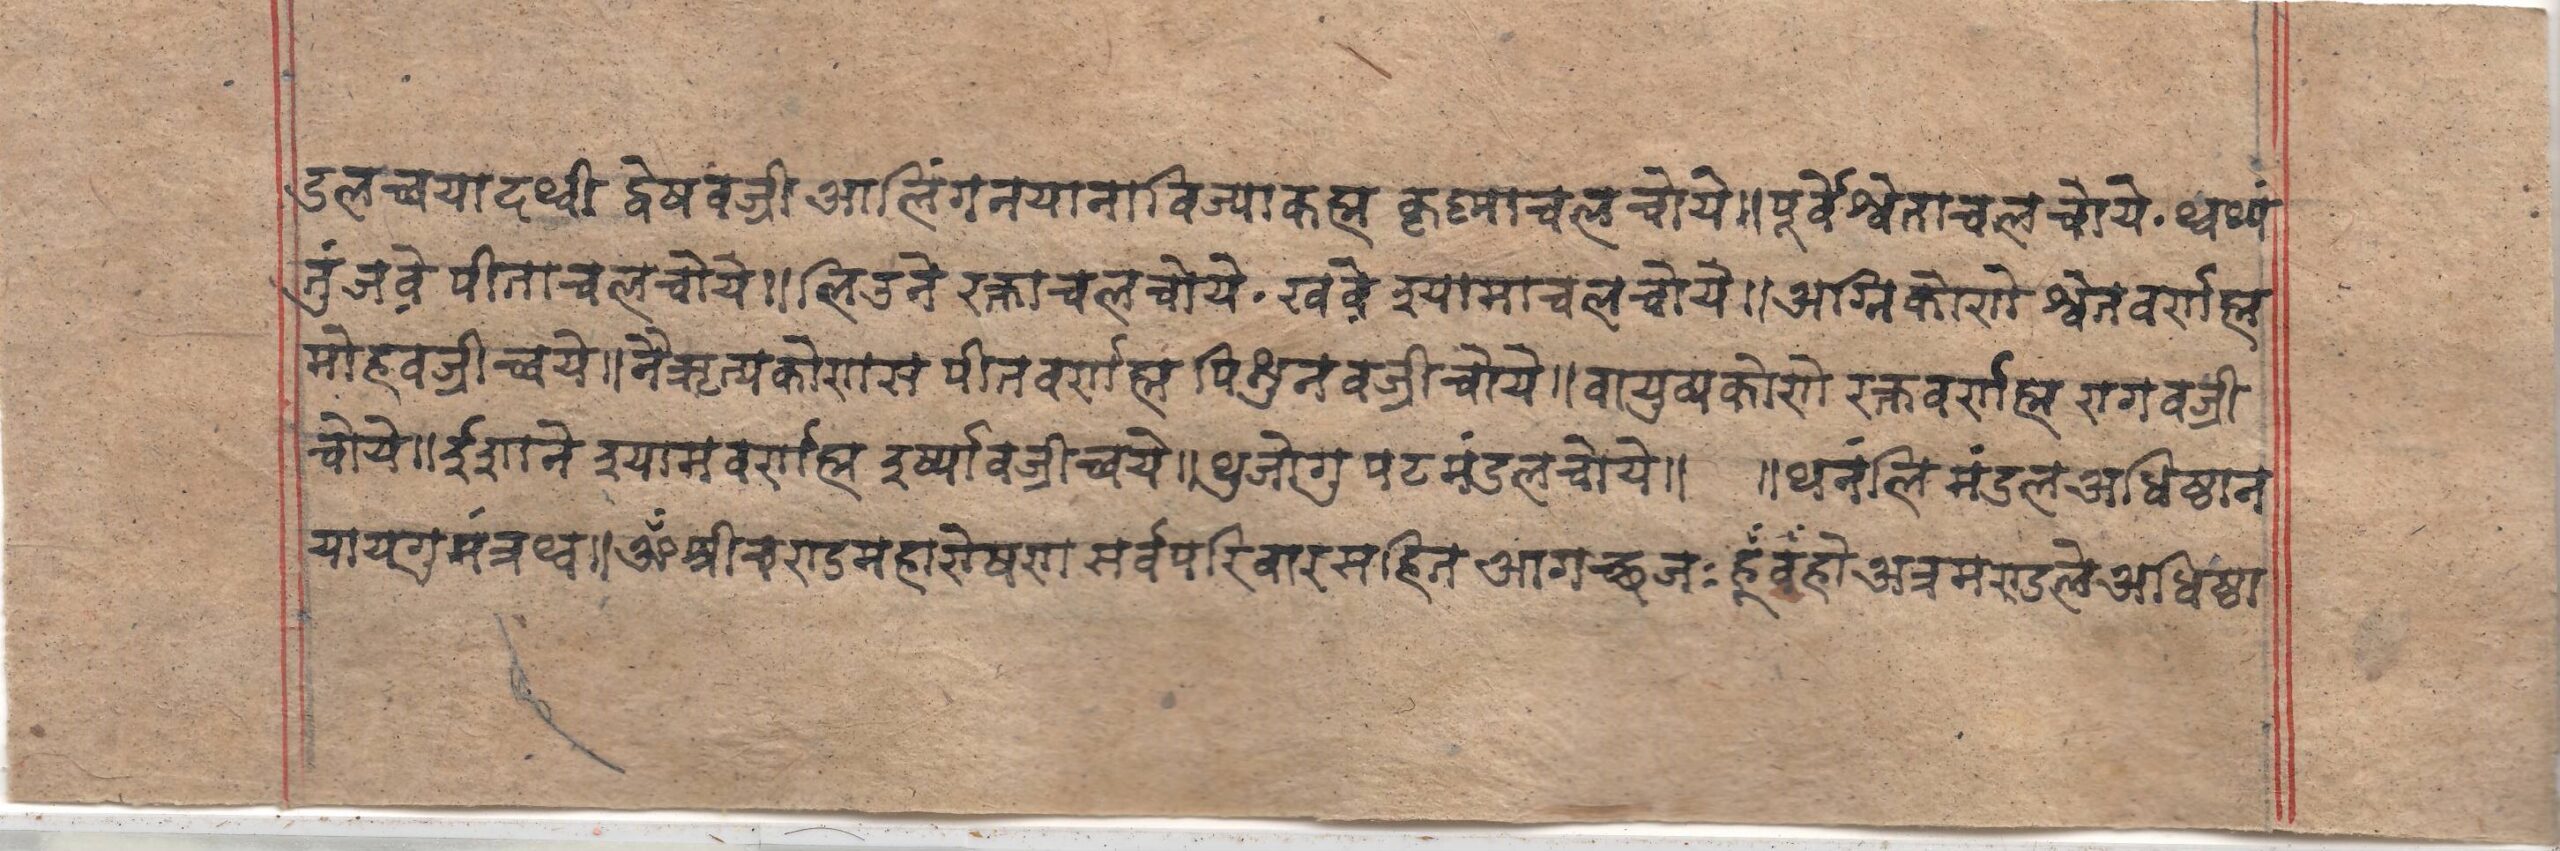 डलच्वयादथ्वी द्वेषवज्री आलिंगनयानाविज्याकह्म कृष्माचलच्वोये॥पूर्वेश्वेताचलच्वोये·थ्वथ्यं
नुंजवे पीताचलच्वोये॥लिउने रक्ताचलच्वोये·खवे इयामाचलच्वोये॥अग्निकोणे श्वेतवर्णह्म
मोहवज्रीच्वये॥नैऋत्यकोणस पीतवर्णह्म पिशुनवज्रीच्वोये॥वायुव्यकोणे रक्तवर्णह्म रागवज्री
च्वोये॥ईशाने इयामवर्णह्म इर्ष्यावज्रीच्वये॥थुजोगु पटमंडलच्वोये॥ ॥थनंलि मंडलअधिष्ठान
यायगुमंत्रथ्व॥ॐश्रीचण्डमहारोषण सर्वपरिवारसहित आगच्छजः हूँवंहो अत्रमण्डले अधिष्ठा